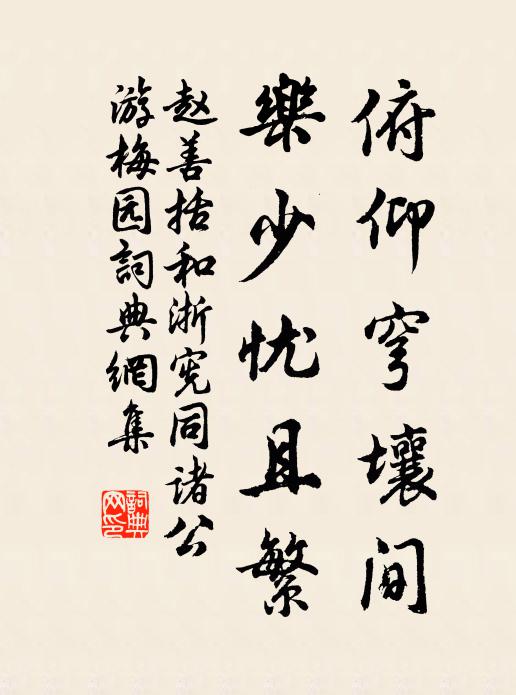 俯仰穹壤间
樂少忧且繁
赵善括和浙宪同诸公
游梅园詞典網集
詞典
网印